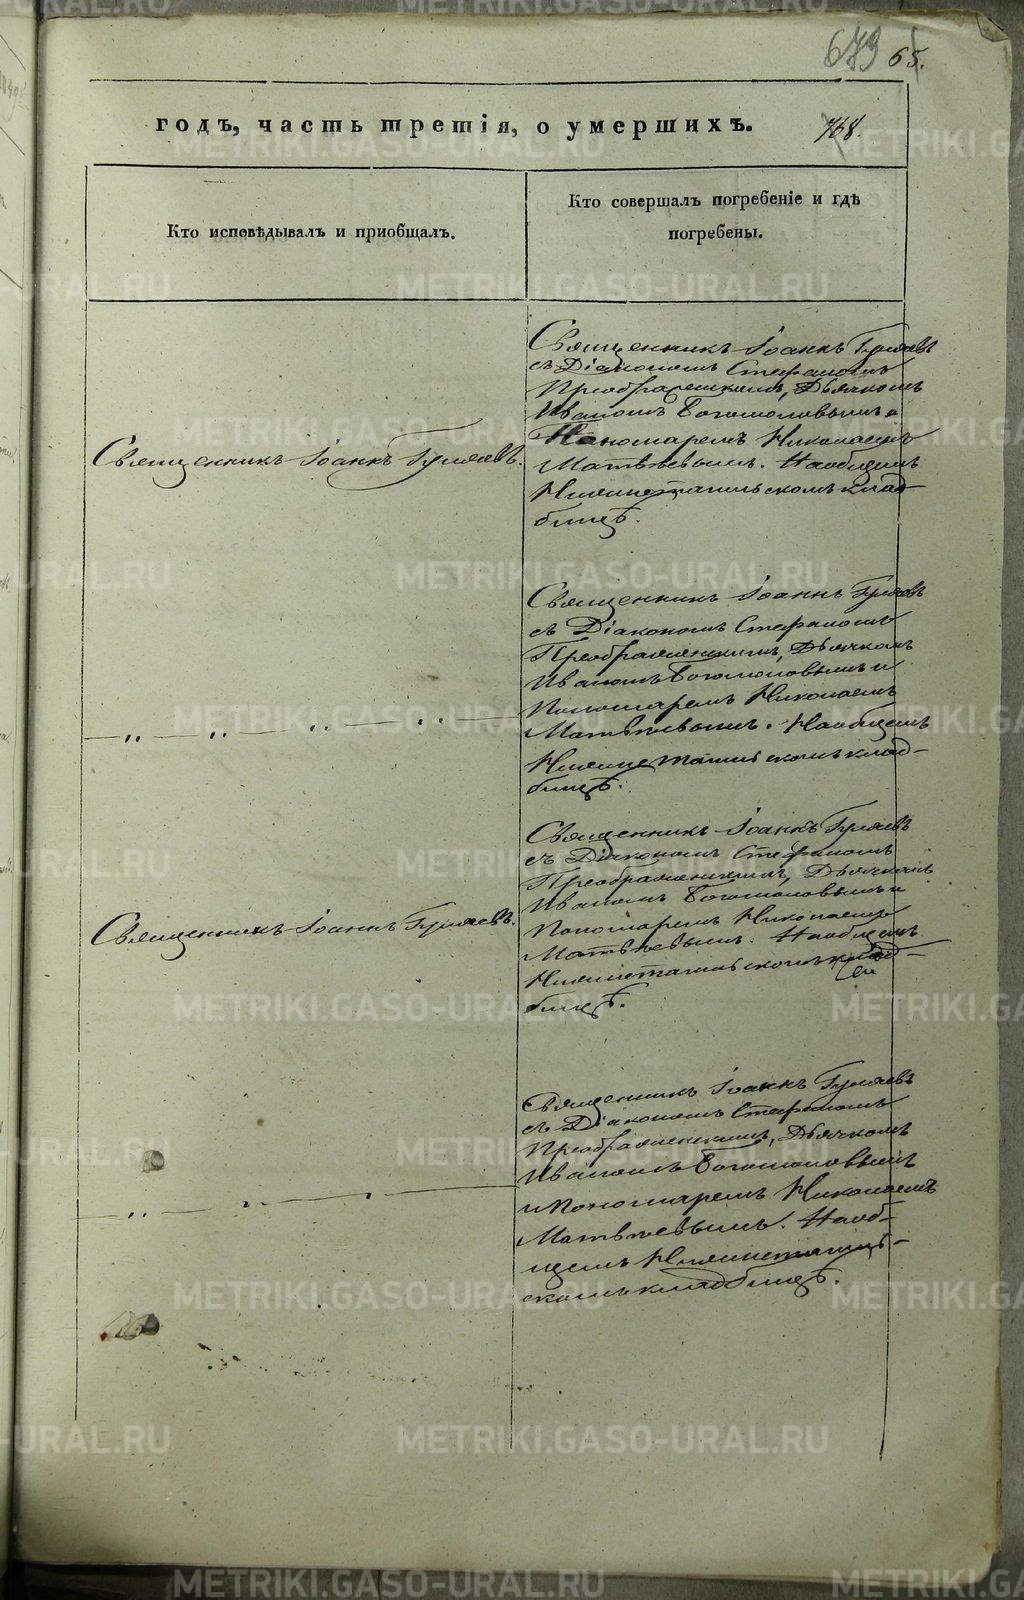 673 65.
годъ, часть третія, о умершихъ. 768.
Кто исповѣдывалъ и приобщалъ.
Кто совершалъ погребеніе и гдѣ
погребены.
Священникъ Іоаннъ Гуляевъ.
Священникъ Іоаннъ Гуляевъ
съ Діакономъ Стефаномъ
Преображенскимъ, Дьячкомъ
Иваномъ Богомоловымъ и
Пономаремъ Николаемъ
Матвѣевымъ. На общемъ
Нижнетагильскомъ клад-
бищѣ.
„ „ „ „
Священникъ Іоаннъ Гуляевъ
съ Діакономъ Стефаномъ
Преображенскимъ, Дьячкомъ
Иваномъ Богомоловымъ и
Пономаремъ Николаемъ
Матвѣевымъ. На общемъ
Нижнетагильскомъ клад-
бищѣ.
Священникъ Іоаннъ Гуляевъ.
Священникъ Іоаннъ Гуляевъ
съ Діакономъ Стефаномъ
Преображенскимъ, Дьячкомъ
Иваномъ Богомоловымъ и
Пономаремъ Николаемъ
Матвѣевымъ. На общемъ
Нижнетагильскомъ клад-
бищѣ.
„ „ „
Священникъ Іоаннъ Гуляевъ
съ Діакономъ Стефаномъ
Преображенскимъ, Дьячкомъ
Иваномъ Богомоловымъ
и Пономаремъ Николаемъ
Матвѣевымъ. На об-
щемъ Нижнетагиль-
скомъ кладбищѣ.
METRIKI.GASO-URAL.RU